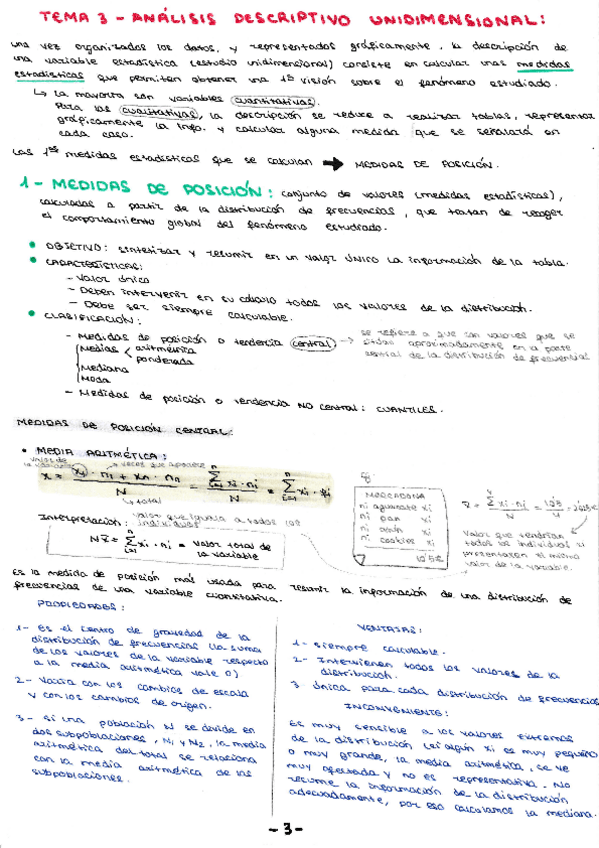 TEMA 3 - ANÁLISIS DESCRIPTIVO UNIDIMENSIONAL:
una vez organizados los datos, y representados gráficamente, la descripción de
una variable estadística (estudio unidimensional) consiste en calcular unas medidas
estadísticas que permiten obtener una 1ª visión sobre el fenómeno estudiado.
↳ la mayoría son variables cuantitativas.
Para las cualitativas, la descripción se reduce a realizar tablas, representar
gráficamente la info. y calcular alguna medida que se señalará en
cada caso.
Las 1ªs medidas estadísticas que se calculan → MEDIDAS DE POSICIÓN.
1- MEDIDAS DE POSICIÓN: conjunto de valores (medidas estadísticas),
calculadas a partir de la distribución de frecuencias, que tratan de recoger
el comportamiento global del fenómeno estudiado.
• OBJETIVO: sintetizar y resumir en un valor ÚNICO la información de la tabla.
• CARACTERÍSTICAS:
- Valor único
- Deben intervenir en su cálculo todos los valores de la distribución.
- Debe ser siempre calculable.
• CLASIFICACIÓN:
- Medidas de posición o tendencia central → se refiere a que son valores que se
sitúan aproximadamente en la parte
central de la distribución de frecuencias
Medias < aritmética
ponderada
Mediana
Moda
- Medidas de posición o tendencia NO central: CUANTILES.
MEDIDAS DE POSICIÓN CENTRAL:
• MEDIA ARITMÉTICA:
valores de
la variable
→ veces que aparece
N
→ total
Interpretación: valor que iguala a todos los
individuos
N x̄ = Σ xi · ni = valor total de
la variable
MERCADONA
ni aguacate xi
ni pan xi
ni xi
ni cookies xi
Valor que tendrían
todos los individuos si
presentasen el mismo
valor de la variable.
Es la medida de posición más usada para resumir la información de una distribución de
frecuencias de una variable cuantitativa.
PROPIEDADES:
1- Es el centro de gravedad de la
distribución de frecuencias (la suma
de los valores de la variable respecto
a la media aritmética vale 0)
2- Varía con los cambios de escala
y con los cambios de origen.
3- si una población N se divide en
dos subpoblaciones, N1 y N2, la media
aritmética del total se relaciona
con la media aritmética de las
subpoblaciones.
VENTAJAS:
1- Siempre calculable.
2- Intervienen todos los valores de la
distribución.
3 Única para cada distribución de frecuencias
INCONVENIENTE:
Es muy sensible a los valores extremos
de la distribución (si algún xi es muy pequeño
o muy grande, la media aritmética, se ve
muy afectada y no es representativa. No
resume la información de la distribución
adecuadamente, por eso calculamos la mediana.
-3-